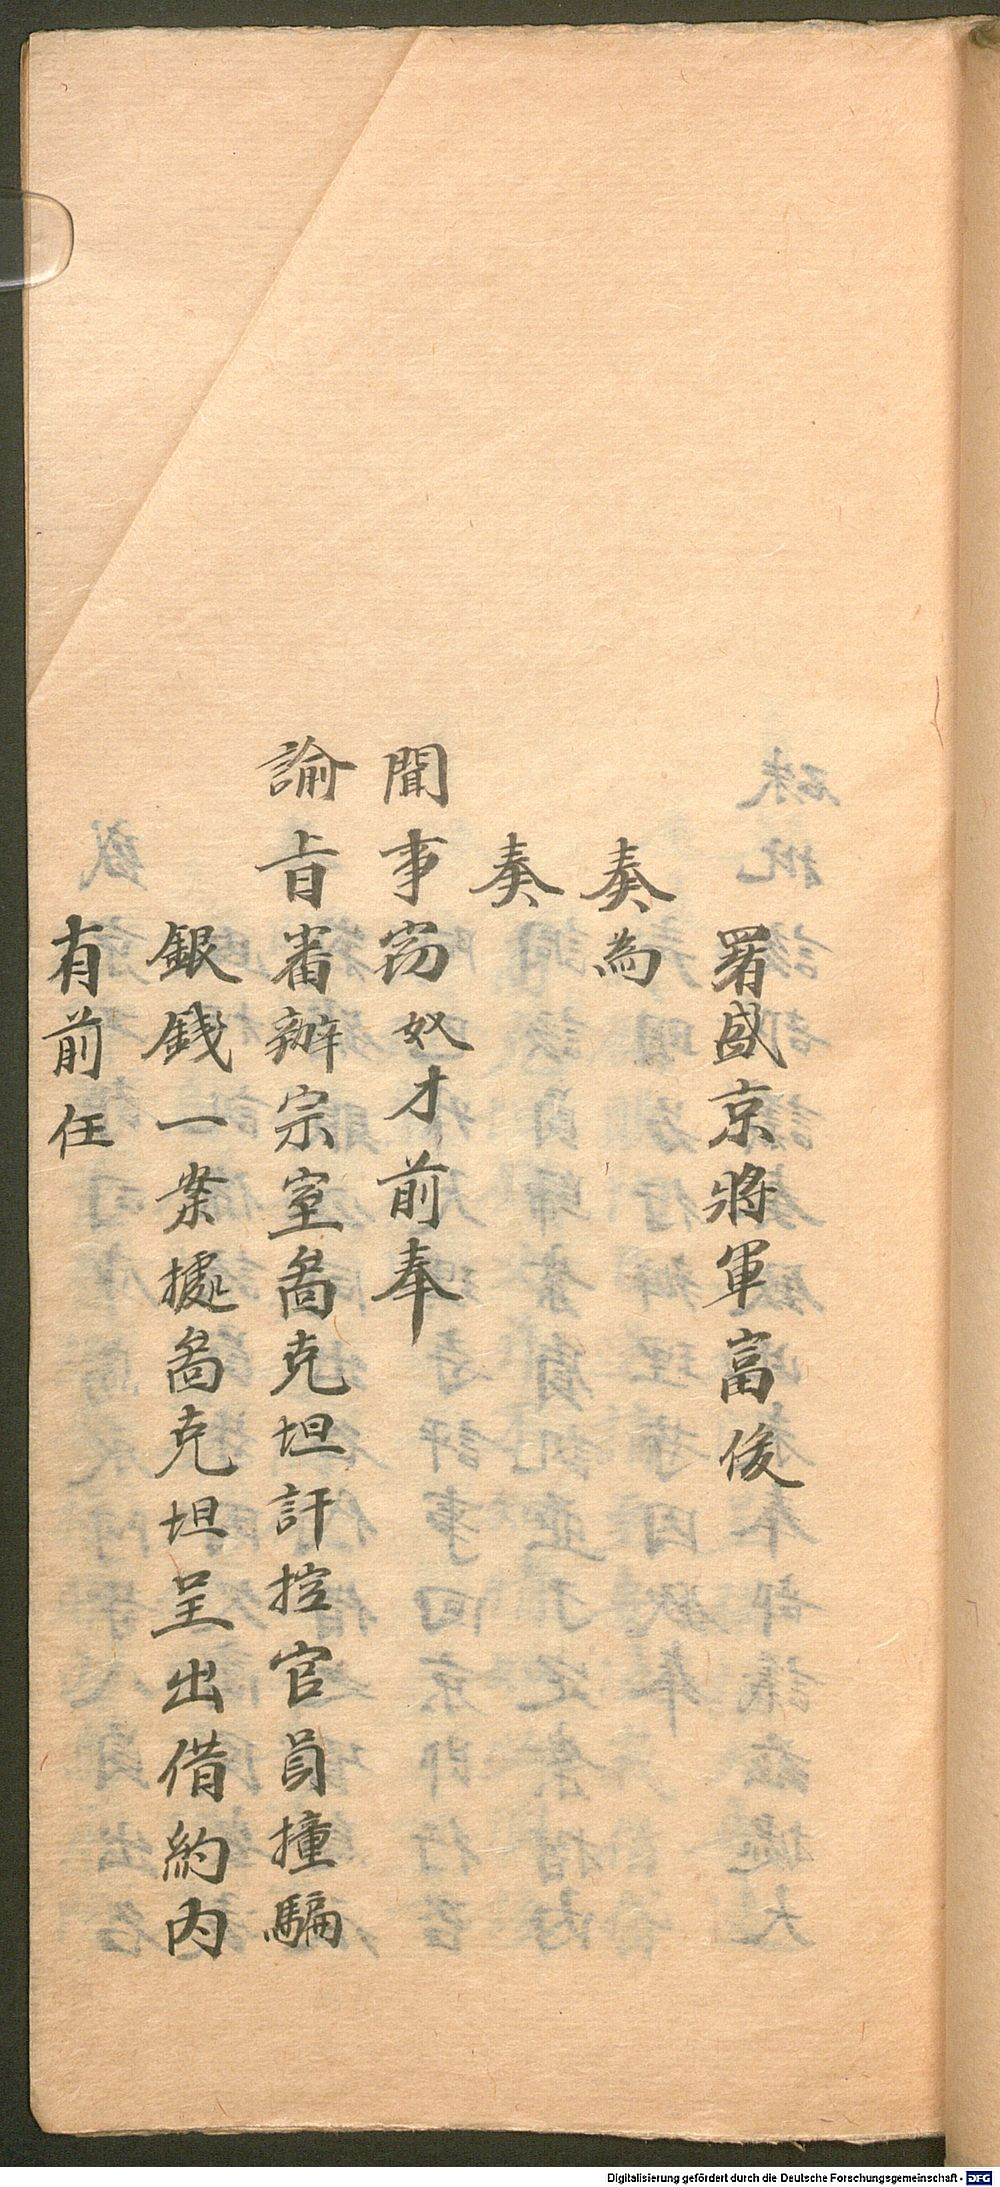 署盛京將軍富俊
奏為
奏
聞事窃奴才前奉
諭旨審辦宗室啚克坦訐控官員撞騙
銀錢一案據啚克坦呈出借約內
有前任
Digitalisierung gefördert durch die Deutsche Forschungsgemeinschaft - DFG